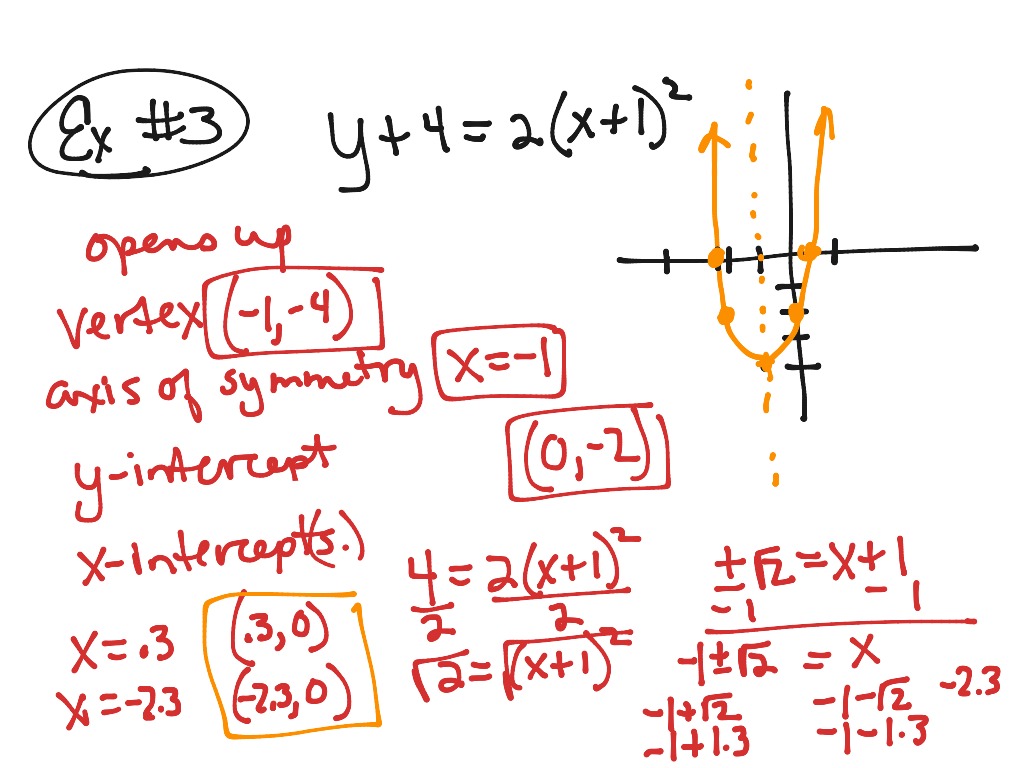 Ex #3
y + 4 = 2(x+1)²
opens up
vertex (-1, -4)
axis of symmetry x = -1
y-intercept (0, -2)
x-intercept(s.)
x = .3 (.3, 0)
x = -2.3 (-2.3, 0)
4 = 2(x+1)²
2 2
√2 = √(x+1)²
±√2 = x + 1
-1 - 1
-1 ± √2 = x
-1+√2
-1 + 1.3
-1-√2 -2.3
-1 - 1.3